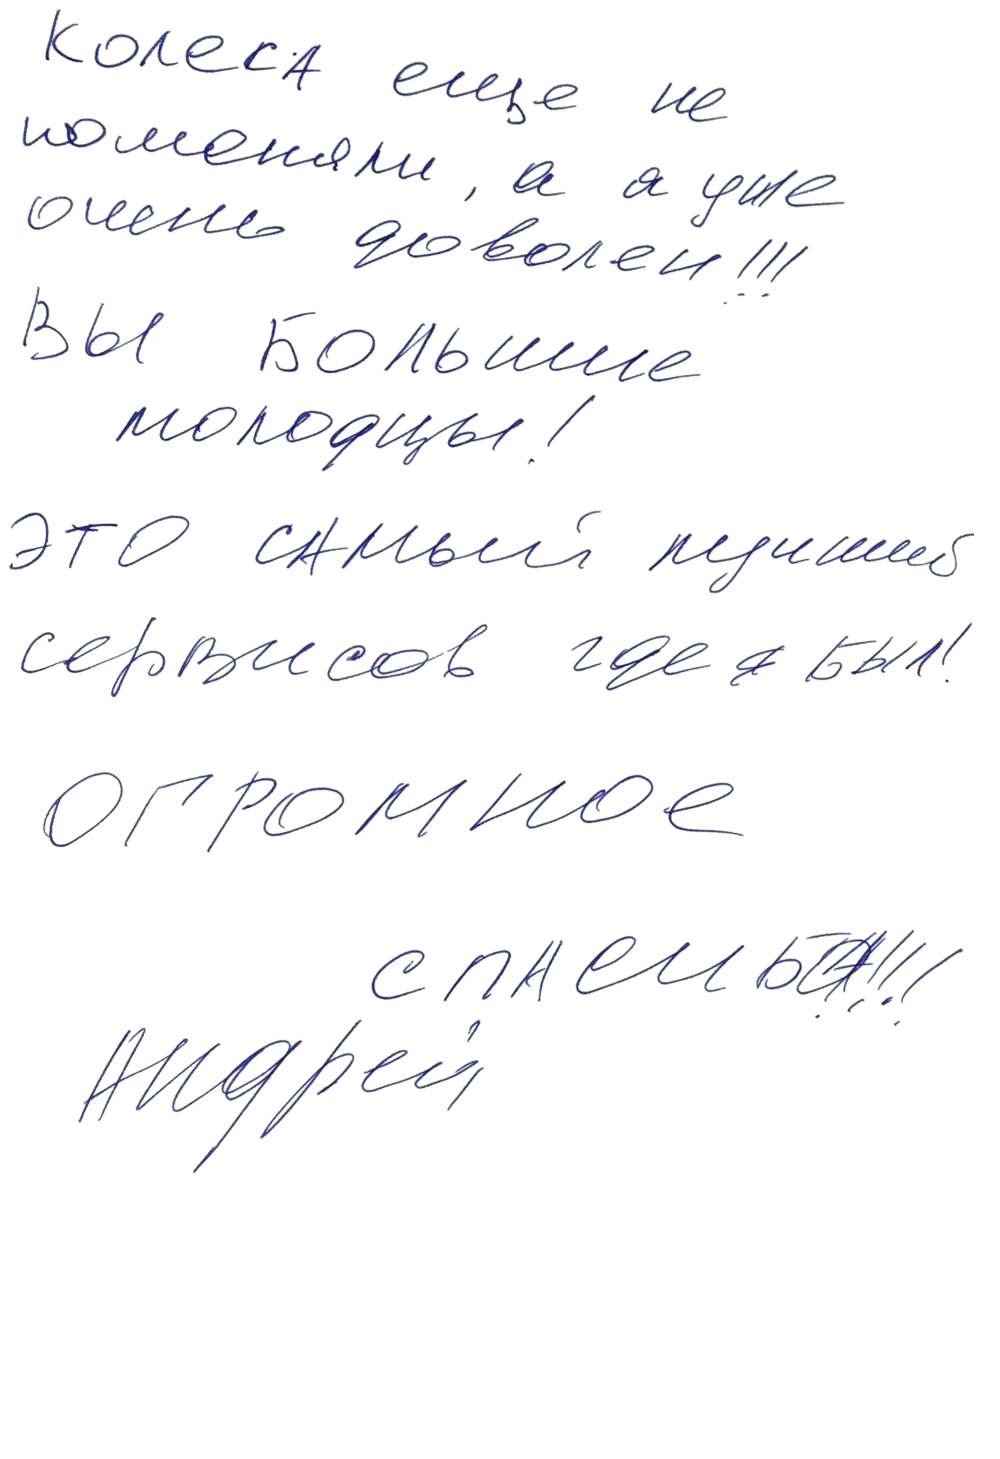 Колеса еще не
поменяли, а я уже
очень доволен!!!
Вы большие
молодцы!
Это самый лучший
сервисов где я был!
Огромное
спасибо!!!
Андрей